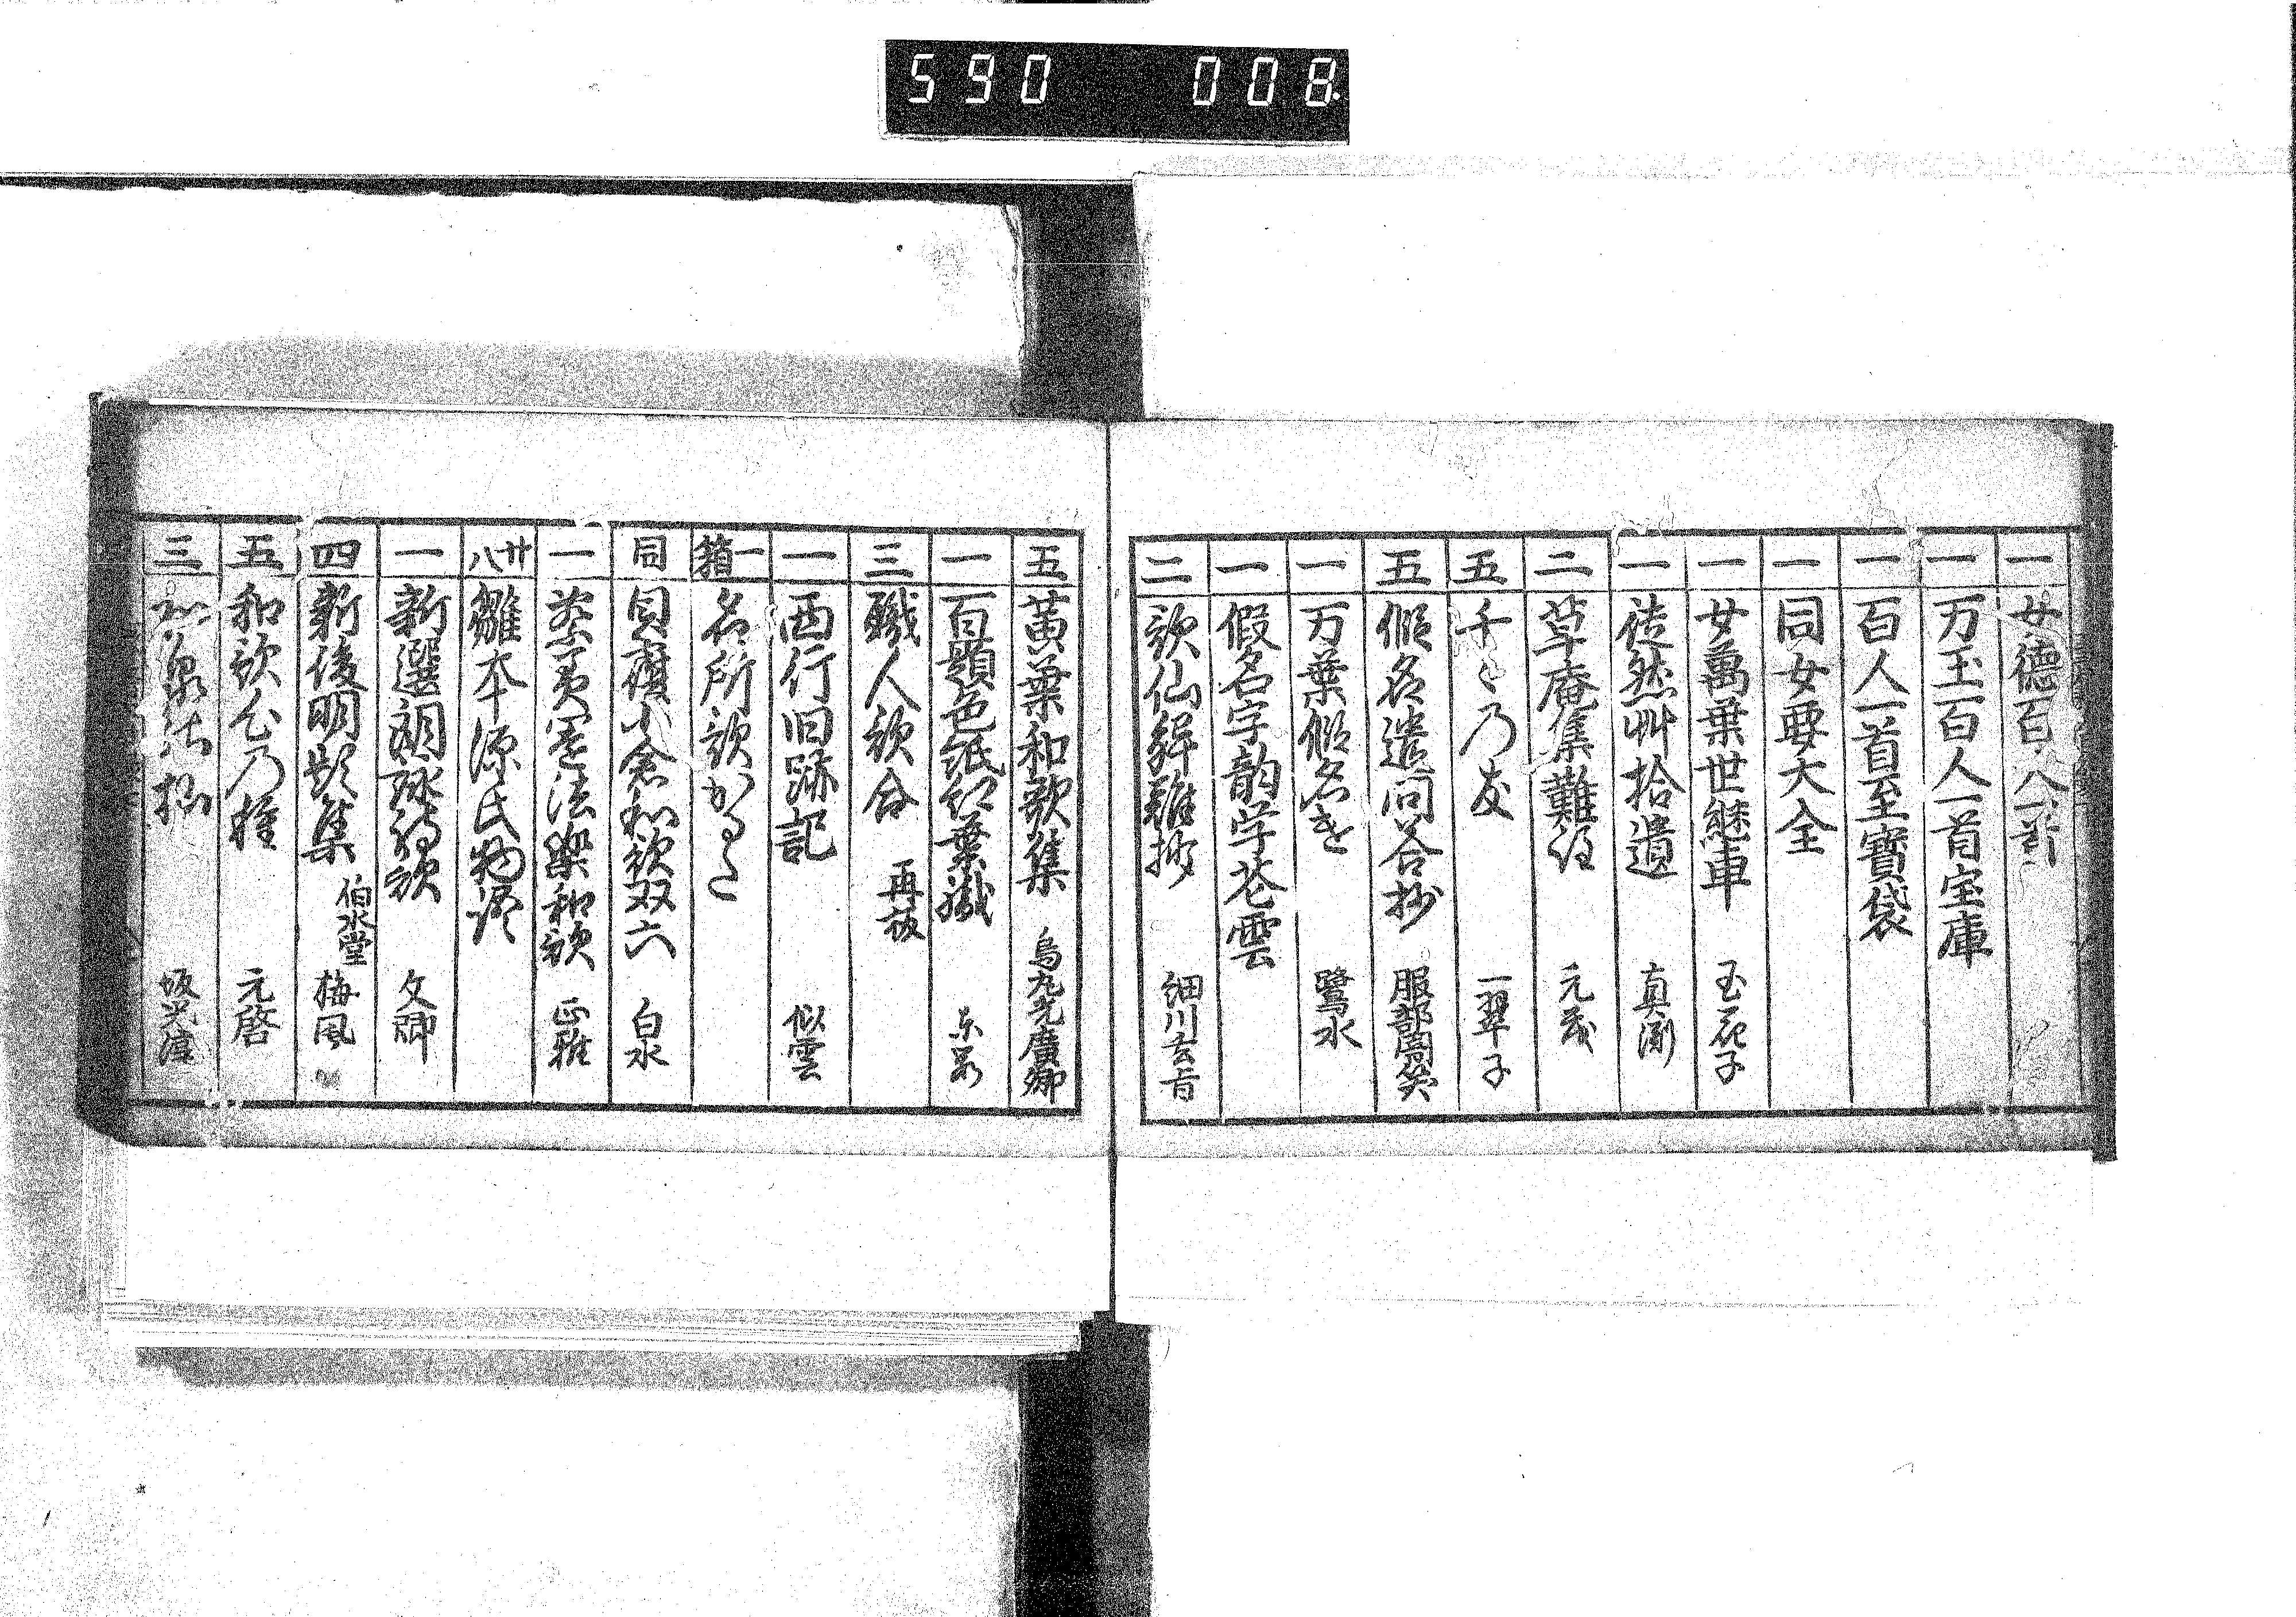 590 008
一 女徳百人一首
一 万玉百人一首宝庫
一 百人一首至寶袋
一 同女要大全
一 女萬葉世継車 玉花子
一 徒然艸拾遺 真
二 草庵集難註 元茂
五 千々乃友 一翠子
五 假名遣問答抄 服部図笑
一 万葉假名遣 鷺水
一 假名字韵学芲雲
二 歌仙解難抄 細川玄旨
五 黄葉和歌集 烏丸光廣卿
一 百題色紙紅葉織
三 職人歌合 再板
一 西行旧跡記 似雲
一箱 名所歌かるた
同 貝寶小倉和歌双六 白水
一 法楽和歌 正雅
廿八 雛本源氏物語
一 新選朗詠和歌 文卿
四 新後明題集 伯水堂 梅風
五 和歌乃種 元啓
三